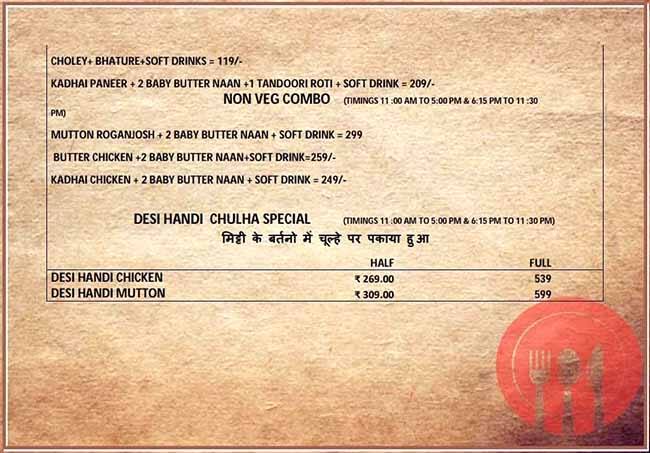 CHOLEY+ BHATURE+SOFT DRINKS = 119/-
KADHAI PANEER + 2 BABY BUTTER NAAN +1 TANDOORI ROTI + SOFT DRINK = 209/-
NON VEG COMBO (TIMINGS 11 :00 AM TO 5:00 PM & 6:15 PM TO 11 :30
PM)
MUTTON ROGANJOSH + 2 BABY BUTTER NAAN + SOFT DRINK = 299
BUTTER CHICKEN +2 BABY BUTTER NAAN+SOFT DRINK=259/-
KADHAI CHICKEN + 2 BABY BUTTER NAAN + SOFT DRINK = 249/-
DESI HANDI CHULHA SPECIAL (TIMINGS 11 :00 AM TO 5:00 PM & 6:15 PM TO 11:30 PM)
मिट्टी के बर्तनो में चूल्हे पर पकाया हुआ
HALF FULL
DESI HANDI CHICKEN ₹ 269.00 539
DESI HANDI MUTTON ₹ 309.00 599